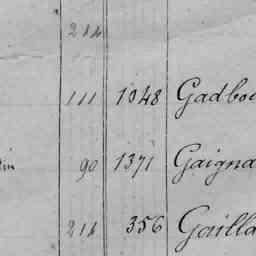 214
111 1048 Gadbo
tin 90 1371 Gaigna
214 356 Gailla